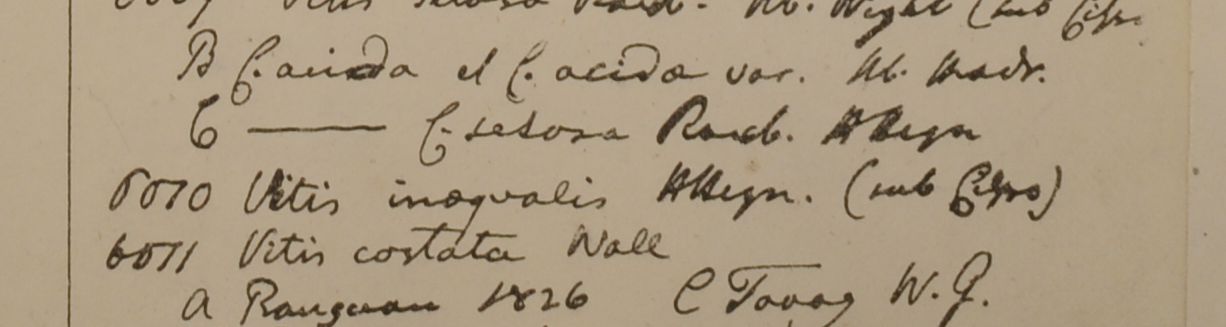 6009 Vitis setosa Roxb. Hb. Wight (sub Cisso
B C. acida et C. acida var. Hb. Madr.
C — C. setosa Roxb. HHeyn
6010 Vitis inæqualis HHeyn. (sub Cisso)
6011 Vitis costata Wall
A Rangoon 1826 C Tavoy W. G.